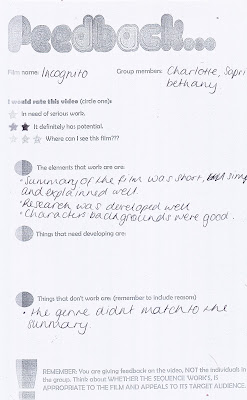 Feedback...
Film name: Incognito Group members: Charlotte, Sapri
bethany.
I would rate this video (circle one):
in need of serious work.
It definitely has potential.
Where can I see this film???
The elements that work are are:
• Summary of the film was short, simple
and explained well
• Research was developed well
• Characters backgrounds were good.
Things that need developing are:
Things that don't work are (remember to include reasons)
• the genre didnt match to the
summary.
REMEMBER: You are giving feedback on the video, NOT the individuals in
the group. Think about WHETHER THE SEQUENCE WORKS, IS
APPROPRIATE TO THE FILM AND APPEALS TO ITS TARGET AUDIENCE.